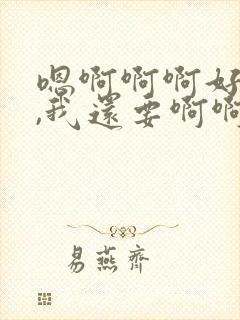 嗯啊啊啊好
,我还要啊啊
易燕齐